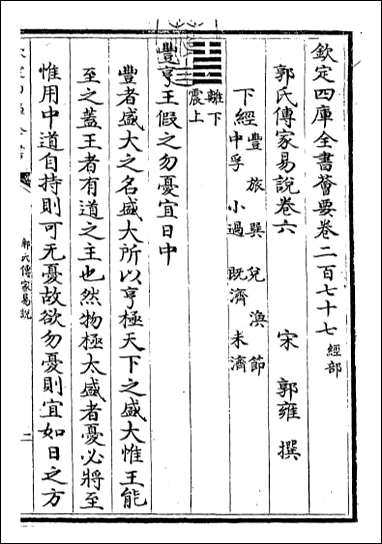 欽定四庫全書薈要卷二百七十七 經部
郭氏傳家易說卷六
宋 郭雍 撰
下經 豐 旅 巽 兌 渙 節
中孚 小過 既濟 未濟
離下
震上
豐亨王假之勿憂宜日中
豐者盛大之名盛大所以亨極天下之盛大惟王能
至之蓋王者有道之主也然物極太盛者憂必將至
惟用中道自持則可无憂故欲勿憂則宜如日之方
郭氏傳家易說